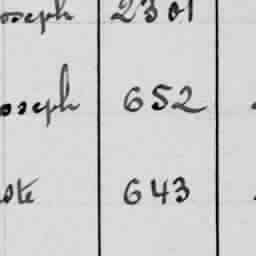 oseph 2301
oseph 652
ste 643